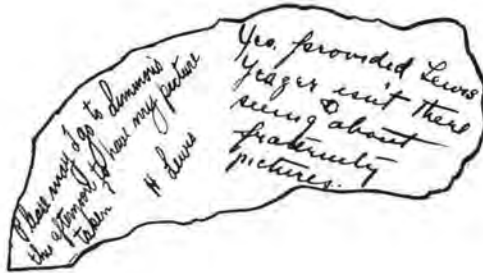 Please may I go to Simmons
this afternoon to have my picture
taken
H Lewis
Yes. provided Lewis
Yeager isn't there
seeing about
fraternity
pictures.